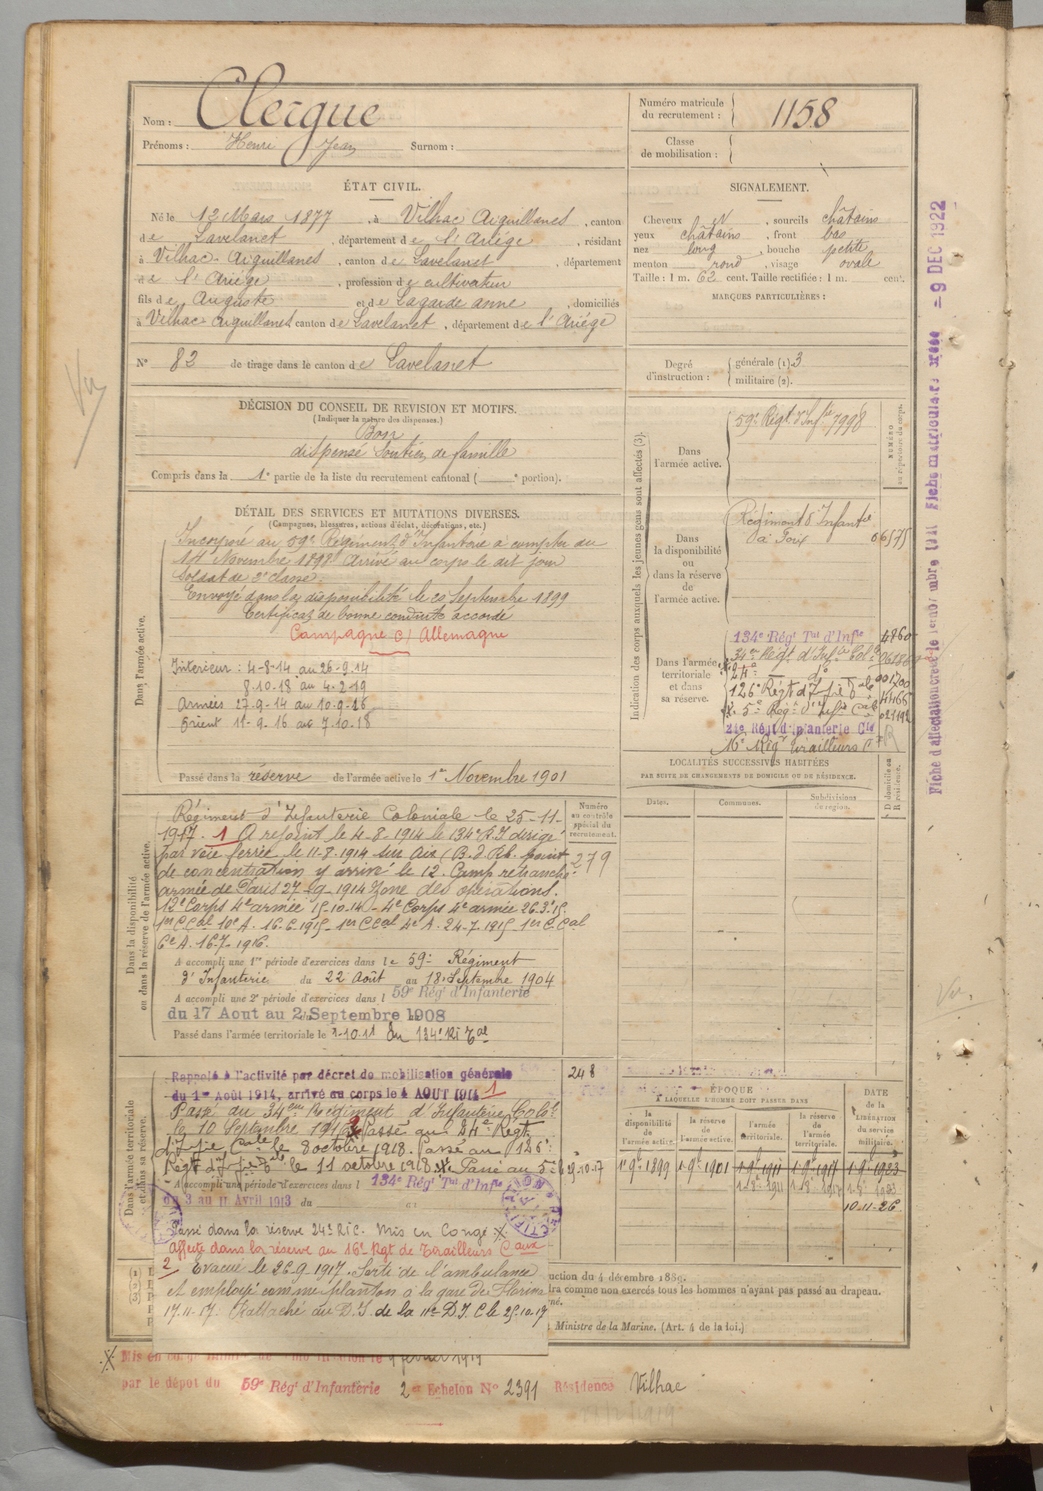 Nom : Clergue
Prénoms : Henri Jean Surnom :
Numéro matricule du recrutement : 1158
Classe de mobilisation :
ÉTAT CIVIL.
Né le 12 Mars 1877, à Vilhac Aiguillanes, canton
de Lavelanet, département de l'Ariége, résidant
à Vilhac-Aiguillanes, canton de Lavelanet, département
de l'Ariége, profession de cultivateur
fils de Auguste et de Lagarde anne, domiciliés
à Vilhac-Aiguillanes canton de Lavelanet, département de l'Ariége
N° 82 de tirage dans le canton de Lavelanet
SIGNALEMENT.
Cheveux N, sourcils châtains
yeux châtains, front bas
nez long, bouche petite
menton rond, visage ovale
Taille : 1 m. 62 cent. Taille rectifiée : 1 m. cent.
MARQUES PARTICULIÈRES :
Degré d'instruction : générale (1). 3
militaire (2).
DÉCISION DU CONSEIL DE REVISION ET MOTIFS.
(Indiquer la nature des dispenses.)
Bon
dispensé soutien de famille
Compris dans la 1e partie de la liste du recrutement cantonal ( e portion).
DÉTAIL DES SERVICES ET MUTATIONS DIVERSES.
(Campagnes, blessures, actions d'éclat, décorations, etc.)
Dans l'armée active.
Incorporé au 59e Régiment d'Infanterie à compter du
14 Novembre 1898 Arrivé au corps le dit jour
Soldat de 2e classe.
Envoyé dans la disponibilité le 20 Septembre 1899
Certificat de bonne conduite accordé
Campagne c/ Allemagne
Interieur : 4-8-14 au 26-9-14
8.10.18 au 4-2-19
Armées 27-9-14 au 10.9-16
Orient 11-9-16 au 7.10-18
Passé dans la réserve de l'armée active le 1er Novembre 1901
Indication des corps auxquels les jeunes gens sont affectés (3).
NUMÉRO au répertoire du corps.
Dans l'armée active.
59e Régt. d'Infie 7998
Dans la disponibilité ou dans la réserve de l'armée active.
Régiment d'Infantie
à Foix 06575
Dans l'armée territoriale et dans sa réserve.
134e Régt Tal d'Infie 4860
34me Régt d'Infie Cole
24e do 001200
126e Régt d'Infie 4466
5e Régt d'Infie Cale 021192
24e Régt d'Infanterie Cle
16e Régt Tirailleurs
LOCALITÉS SUCCESSIVES HABITÉES
PAR SUITE DE CHANGEMENTS DE DOMICILE OU DE RÉSIDENCE.
Dates. Communes. Subdivisions de région. D domicile ou R résidence.
Numéro au contrôle spécial du recrutement.
279
Dans la disponibilité ou dans la réserve de l'armée active.
Régiment d'Infanterie Coloniale le 25-11-
1917. 1 A rejoint le 4-8-1914 le 134e R.I dirigé
par voie ferrée le 11-8-1914 sur Aix (B. d. Rh. point
de concentration y arrive le 12. Camp retranché
armée de Paris 27-9-1914 zone des opérations.
12e Corps 4e armée 15-10-14 - 4e Corps 4e armée 26.3.15
1er C.Cal 10e A. 16.6.1915 - 1er C Cal 4e A. 24.7.1915 1er C.Cal
6e A. 16.7.1916.
A accompli une 1re période d'exercices dans le 59e Régiment
d'Infanterie du 22 Août au 18 Septembre 1904
A accompli une 2e période d'exercices dans l 59e Régt d'Infanterie
du 17 Aout au 2 Septembre 1908
Passé dans l'armée territoriale le 1-10.11 au 134e RI Tal
Dans l'armée territoriale et dans sa réserve.
Rappelé à l'activité par décret de mobilisation générale
du 1er Août 1914, arrivé au corps le 4 AOUT 1914 1
Passé au 34em Régiment d'Infanterie Cole
le 10 Septembre 1916 2 Passé au 24e Régt
d'Infie Cale le 8 octobre 1918. Passé au 126e
Régt d'Infie le 11 octobre 1918. Passé au 5e
248
29-10-17
A accompli une période d'exercices dans l 134e Régt Tal d'Infie
du 3 au 11 Avril 1913 du
Passé dans la réserve 24e R.I.C. Mis en Congé
Affecté dans la réserve au 16e Rgt de Tirailleurs Caux
2 Evacué le 26-9.1917. Sorti de l'ambulance
et employé comme planton à la gare de Florina
17.11-17. Rattaché au D.I. de la 11e D.I.C le 25.10.17
ÉPOQUE
À LAQUELLE L'HOMME DOIT PASSER DANS
la disponibilité de l'armée active. la réserve de l'armée active. l'armée territoriale. la réserve de l'armée territoriale.
DATE de la LIBÉRATION du service militaire.
1er 9e 1899 1er 9e 1901 1er 9e 1911 1er 9e 1917 1er 9e 1923
10-11-26
uction du 4 décembre 1889.
tra comme non exercés tous les hommes n'ayant pas passé au drapeau.
Ministre de la Marine. (Art. 4 de la loi.)
Mis en congé
février 1919
par le dépot du 59e Régt d'Infanterie 2e Echelon N° 2391 Résidence Vilhac
Vu
Vu.
= 9 DEC 1922